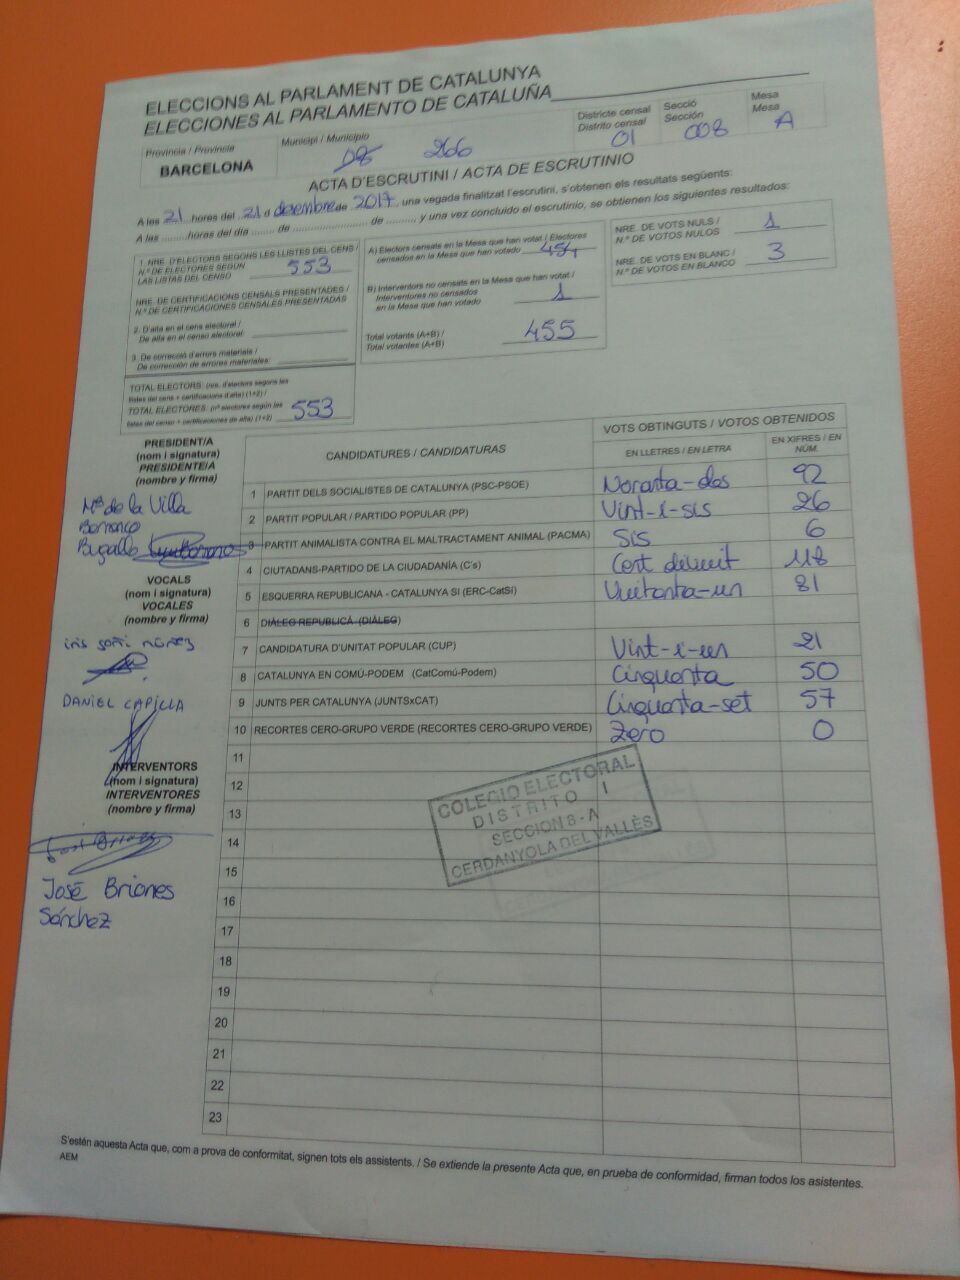 ELECCIONS AL PARLAMENT DE CATALUNYA
ELECCIONES AL PARLAMENTO DE CATALUÑA
Província / Provincia
BARCELONA
Municipi / Municipio
08 266
Districte censal
Distrito censal
01
Secció
Sección
008
Mesa
Mesa
A
ACTA D'ESCRUTINI / ACTA DE ESCRUTINIO
A les 21 hores del 21 d desembre de 2017, una vegada finalitzat l'escrutini, s'obtenen els resultats següents:
A las ..........horas del día ....... de ......................... de .......... y una vez concluido el escrutinio, se obtienen los siguientes resultados:
1. NRE. D'ELECTORS SEGONS LES LLISTES DEL CENS /
N.º DE ELECTORES SEGÚN
LAS LISTAS DEL CENSO
553
NRE. DE CERTIFICACIONS CENSALS PRESENTADES /
N.º DE CERTIFICACIONES CENSALES PRESENTADAS
2. D'alta en el cens electoral /
De alta en el censo electoral:
3. De correcció d'errors materials /
De corrección de errores materiales:
TOTAL ELECTORS: (nre. d'electors segons les
llistes del cens + certificacions d'alta) (1+2) /
TOTAL ELECTORES: (nº electores según las
listas del censo + certificaciones de alta) (1+2)
553
A) Electors censats en la Mesa que han votat / Electores
censados en la Mesa que han votado
454
B) Interventors no censats en la Mesa que han votat /
Interventores no censados
en la Mesa que han votado
1
Total votants (A+B) /
Total votantes (A+B)
455
NRE. DE VOTS NULS /
N.º DE VOTOS NULOS
1
NRE. DE VOTS EN BLANC /
N.º DE VOTOS EN BLANCO
3
PRESIDENT/A
(nom i signatura)
PRESIDENTE/A
(nombre y firma)
Mª de la Villa
Borronco
Bugallo
VOCALS
(nom i signatura)
VOCALES
(nombre y firma)
iris
DANIEL CAPILLA
INTERVENTORS
(nom i signatura)
INTERVENTORES
(nombre y firma)
José Briones
Sánchez
CANDIDATURES / CANDIDATURAS
VOTS OBTINGUTS / VOTOS OBTENIDOS
EN LLETRES / EN LETRA
EN XIFRES / EN NÚM.
1 PARTIT DELS SOCIALISTES DE CATALUNYA (PSC-PSOE) Noranta-dos 92
2 PARTIT POPULAR / PARTIDO POPULAR (PP) Vint-i-sis 26
3 PARTIT ANIMALISTA CONTRA EL MALTRACTAMENT ANIMAL (PACMA) Sis 6
4 CIUTADANS-PARTIDO DE LA CIUDADANÍA (C's) Cent divuit 118
5 ESQUERRA REPUBLICANA - CATALUNYA SI (ERC-CatSí) Vuitanta-un 81
6 DIÀLEG REPUBLICÀ (DIÀLEG)
7 CANDIDATURA D'UNITAT POPULAR (CUP) Vint-i-un 21
8 CATALUNYA EN COMÚ-PODEM (CatComú-Podem) Cinquanta 50
9 JUNTS PER CATALUNYA (JUNTSxCAT) Cinquanta-set 57
10 RECORTES CERO-GRUPO VERDE (RECORTES CERO-GRUPO VERDE) Zero 0
11
12
13
14
15
16
17
18
19
20
21
22
23
COLEGIO ELECTORAL
DISTRITO I
SECCION 8-A
CERDANYOLA DEL VALLÈS
S'estén aquesta Acta que, com a prova de conformitat, signen tots els assistents. / Se extiende la presente Acta que, en prueba de conformidad, firman todos los asistentes.
AEM